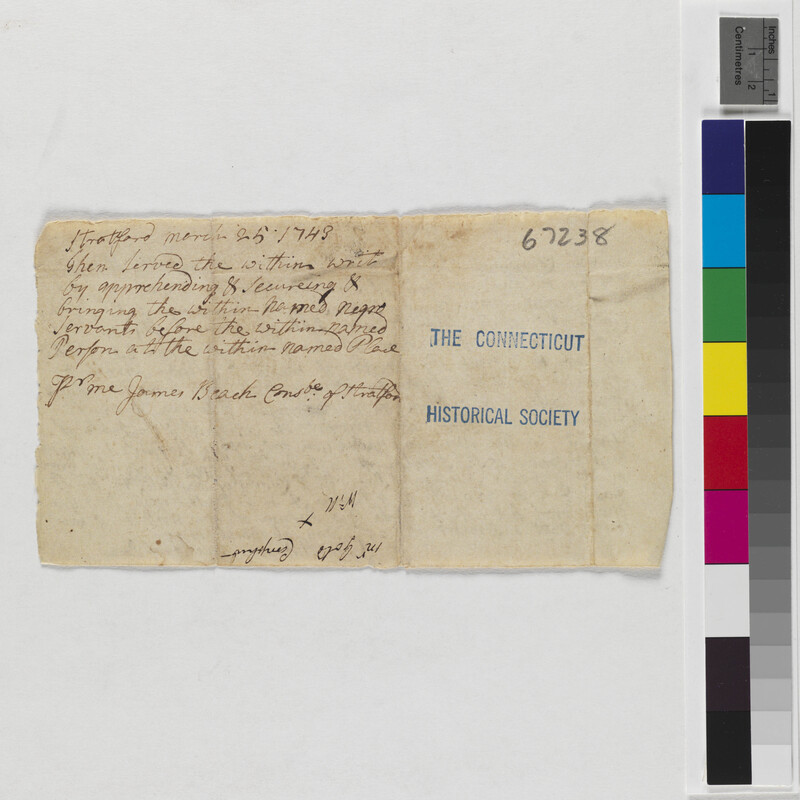 Stratford march 25 1743
then served the within writ
by apprehending & secureing &
bringing the within named negro
servants before the within named
Person att the within named Place
Pr me James Beach Consbe. of Stratford
67238
THE CONNECTICUT
HISTORICAL SOCIETY
mr Gold
Writ
Inches
Centimetres
1
2
1